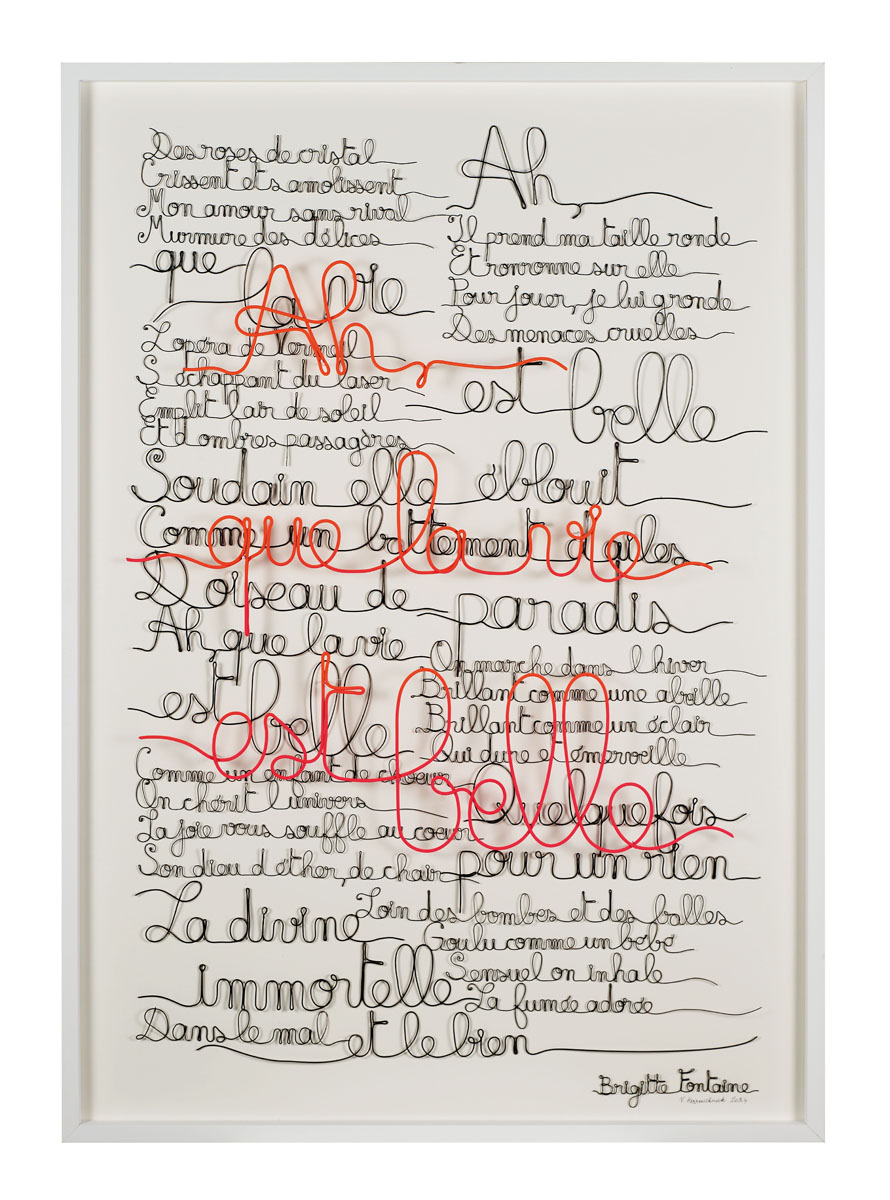 Des roses de cristal
Crissent et s amolissent
Mon amour sans rival
Murmure des délices
Ah
que la vie
est belle
Il prend ma taille ronde
Et ronronne sur elle
Pour jouer, je lui gronde
Des menaces cruelles
L opéra de Vermeil
S échappant du laser
Emplit l air de soleil
Et d ombres passagères
Ah
que la vie
est belle
Soudain elle éblouit
Comme un battement d ailes
D oiseau de paradis
Ah, que la vie
est belle
On marche dans l hiver
Brillant comme une abeille
Brillant comme un éclair
Qui dure et émerveille
Comme un enfant de choeur
On chérit l univers
La joie vous souffle au coeur
Son dieu d éther, de chair
Quelquefois
pour un rien
La divine
immortelle
Loin des bombes et des balles
Goulu comme un bébé
Sensuel on inhale
La fumée adorée
Dans le mal et le bien
Brigitte Fontaine
2024